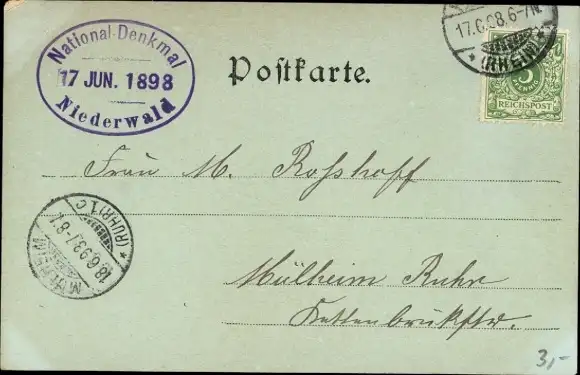 National-Denkmal
17 JUN. 1898
Niederwald
Postkarte.
17.6.98.6-7N.
* (RHEIN) *
5
PFENNIG
REICHSPOST
Frau M. Roßhoff
MÜLHEIM
18.6.98.7-8V.
* (RUHR) 1 C
Mülheim Ruhr
Kettenbrückstr.
3,-